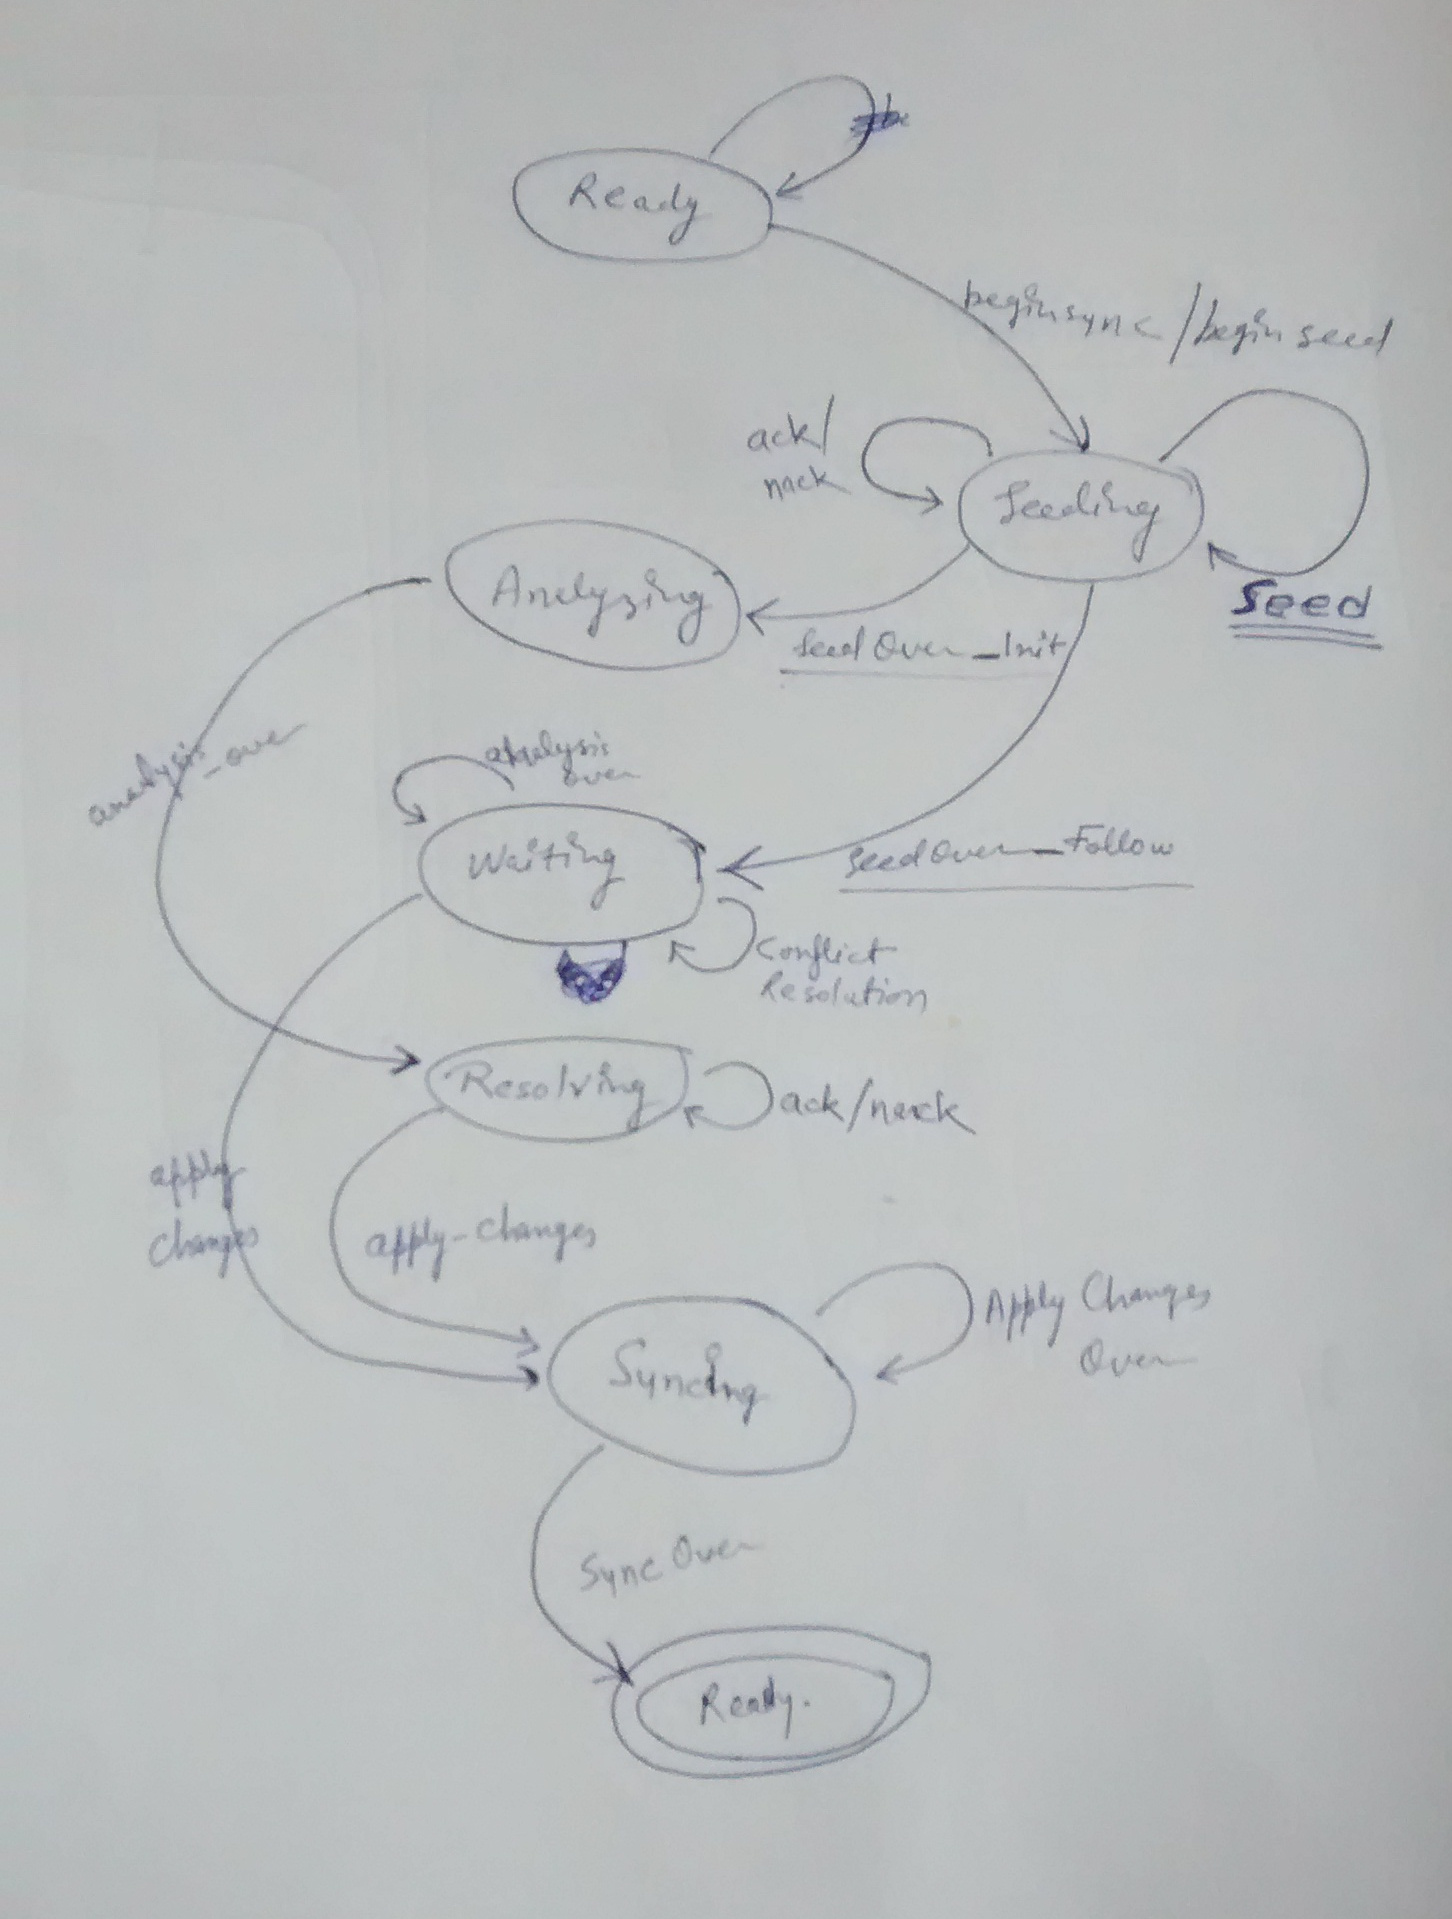 Ready
beginsync / begin seed
ack/
nack
Seeding
Seed
Analyzing
SeedOver_Init
analysis_over
analysis
over
Waiting
SeedOver_Follow
Conflict
Resolution
Resolving
ack/nack
apply
changes
apply-changes
Syncing
Apply Changes
Over
Sync Over
Ready.